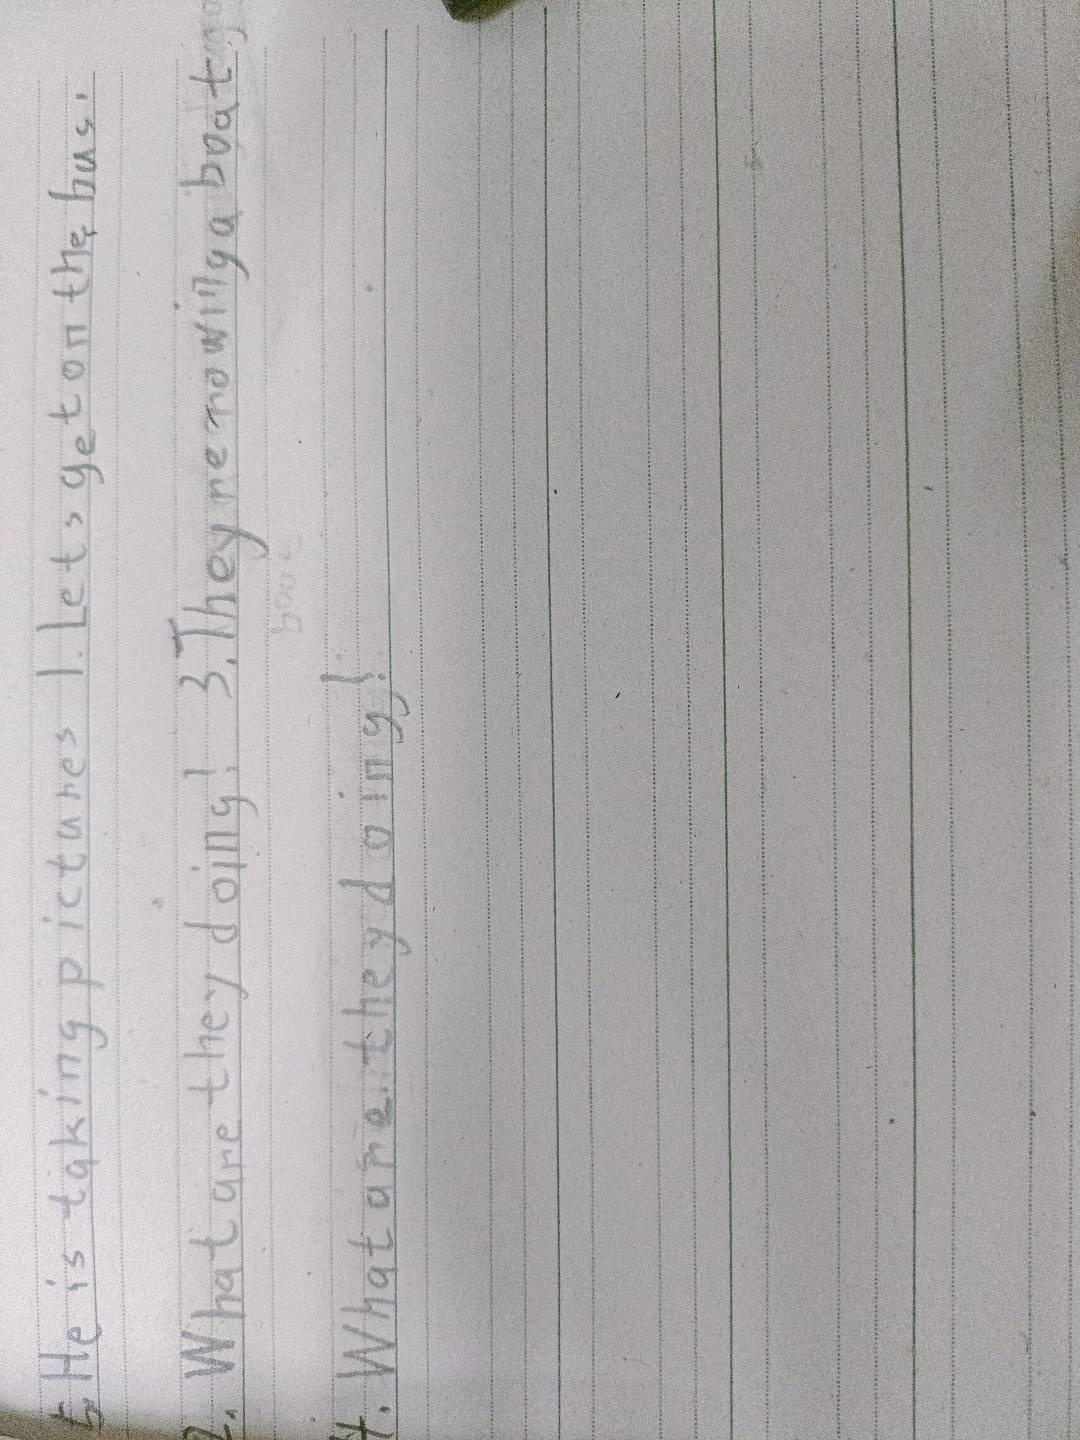 5. He is taking pictures 1. Let's get on the bus.
2. What are they doing! 3. They're rowing a boat
boat
4. What are they doing!